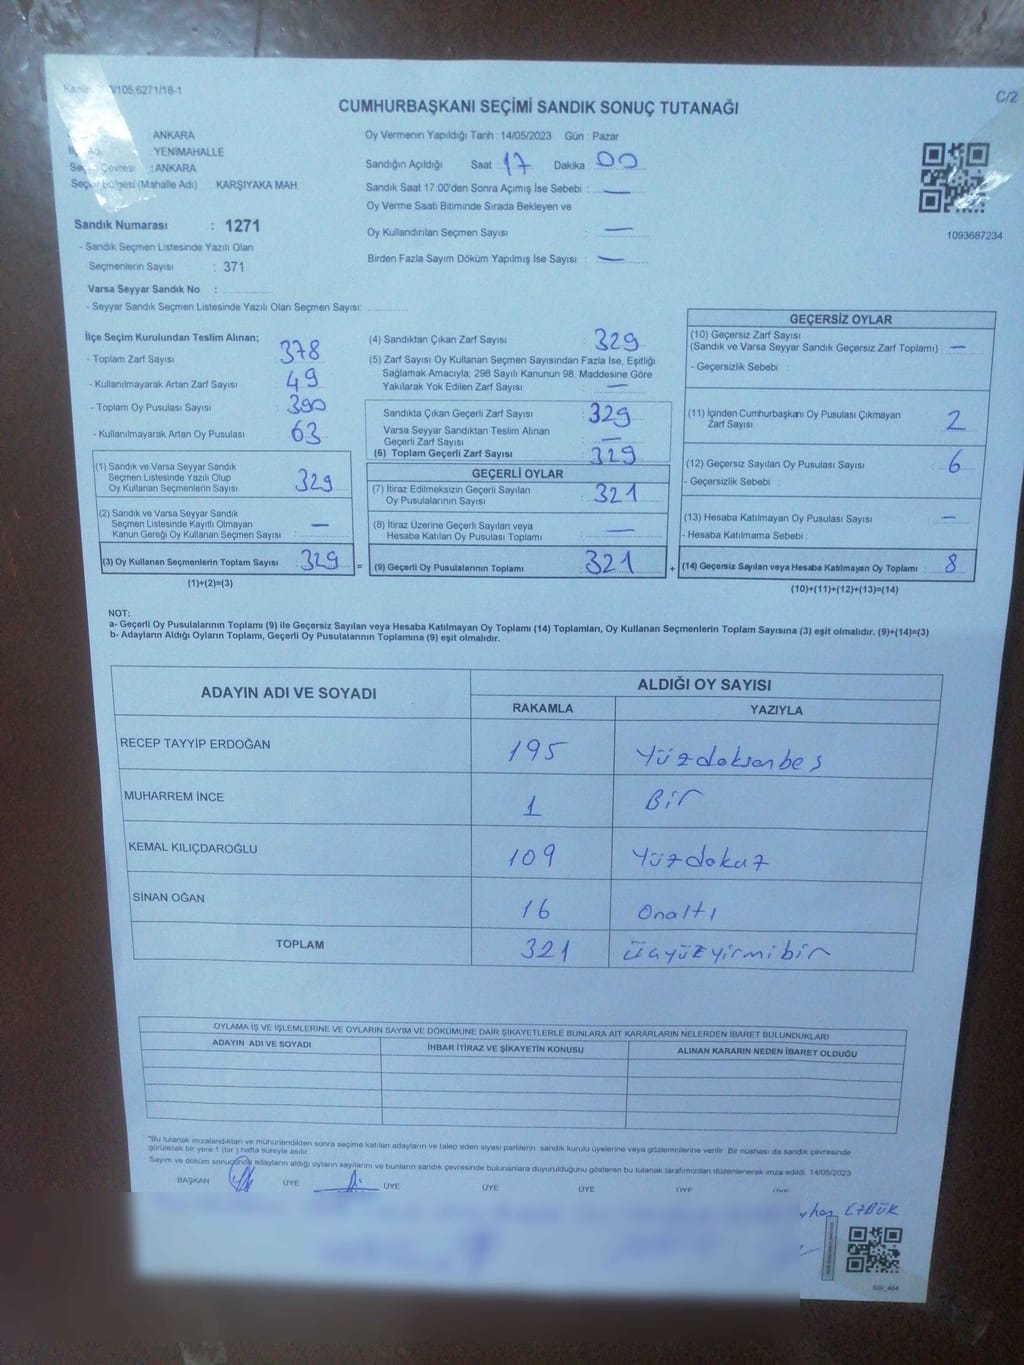 /105,6271/18-1
C/2
CUMHURBAŞKANI SEÇİMİ SANDIK SONUÇ TUTANAĞI
ANKARA
YENİMAHALLE
Seçim Çevresi :ANKARA
Seçim Bölgesi (Mahalle Adı) KARŞIYAKA MAH.
Oy Vermenin Yapıldığı Tarih : 14/05/2023 Gün : Pazar
Sandığın Açıldığı Saat 17 Dakika 00
Sandık Saat 17:00'den Sonra Açımış İse Sebebi : —
Oy Verme Saati Bitiminde Sırada Bekleyen ve
Oy Kullandırılan Seçmen Sayısı —
Birden Fazla Sayım Döküm Yapılmış İse Sayısı : —
1093687234
Sandık Numarası : 1271
- Sandık Seçmen Listesinde Yazılı Olan
Seçmenlerin Sayısı : 371
Varsa Seyyar Sandık No :
- Seyyar Sandık Seçmen Listesinde Yazılı Olan Seçmen Sayısı:
İlçe Seçim Kurulundan Teslim Alınan;
- Toplam Zarf Sayısı 378
- Kullanılmayarak Artan Zarf Sayısı 49
- Toplam Oy Pusulası Sayısı 390
- Kullanılmayarak Artan Oy Pusulası 63
(1) Sandık ve Varsa Seyyar Sandık
Seçmen Listesinde Yazılı Olup
Oy Kullanan Seçmenlerin Sayısı 329
(2) Sandık ve Varsa Seyyar Sandık
Seçmen Listesinde Kayıtlı Olmayan
Kanun Gereği Oy Kullanan Seçmen Sayısı : —
(3) Oy Kullanan Seçmenlerin Toplam Sayısı 329 =
(1)+(2)=(3)
(4) Sandıktan Çıkan Zarf Sayısı 329
(5) Zarf Sayısı Oy Kullanan Seçmen Sayısından Fazla İse, Eşitliği
Sağlamak Amacıyla; 298 Sayılı Kanunun 98. Maddesine Göre
Yakılarak Yok Edilen Zarf Sayısı —
Sandıkta Çıkan Geçerli Zarf Sayısı 329
Varsa Seyyar Sandıktan Teslim Alınan
Geçerli Zarf Sayısı —
(6) Toplam Geçerli Zarf Sayısı 329
GEÇERLİ OYLAR
(7) İtiraz Edilmeksizin Geçerli Sayılan
Oy Pusulalarının Sayısı 321
(8) İtiraz Üzerine Geçerli Sayılan veya
Hesaba Katılan Oy Pusulası Toplamı —
(9) Geçerli Oy Pusulalarının Toplamı 321 +
GEÇERSİZ OYLAR
(10) Geçersiz Zarf Sayısı
(Sandık ve Varsa Seyyar Sandık Geçersiz Zarf Toplamı) —
- Geçersizlik Sebebi :
(11) İçinden Cumhurbaşkanı Oy Pusulası Çıkmayan
Zarf Sayısı 2
(12) Geçersiz Sayılan Oy Pusulası Sayısı 6
- Geçersizlik Sebebi :
(13) Hesaba Katılmayan Oy Pusulası Sayısı —
- Hesaba Katılmama Sebebi :
(14) Geçersiz Sayılan veya Hesaba Katılmayan Oy Toplamı : 8
(10)+(11)+(12)+(13)=(14)
NOT:
a- Geçerli Oy Pusulalarının Toplamı (9) ile Geçersiz Sayılan veya Hesaba Katılmayan Oy Toplamı (14) Toplamları, Oy Kullanan Seçmenlerin Toplam Sayısına (3) eşit olmalıdır. (9)+(14)=(3)
b- Adayların Aldığı Oyların Toplamı, Geçerli Oy Pusulalarının Toplamına (9) eşit olmalıdır.
ADAYIN ADI VE SOYADI ALDIĞI OY SAYISI
RAKAMLA YAZIYLA
RECEP TAYYİP ERDOĞAN 195 Yüzdoksanbeş
MUHARREM İNCE 1 Bir
KEMAL KILIÇDAROĞLU 109 Yüzdokuz
SİNAN OĞAN 16 Onaltı
TOPLAM 321 Üçyüzyirmibir
OYLAMA İŞ VE İŞLEMLERİNE VE OYLARIN SAYIM VE DÖKÜMÜNE DAİR ŞİKAYETLERLE BUNLARA AİT KARARLARIN NELERDEN İBARET BULUNDUKLARI
ADAYIN ADI VE SOYADI İHBAR İTİRAZ VE ŞİKAYETİN KONUSU ALINAN KARARIN NEDEN İBARET OLDUĞU
*Bu tutanak imzalandıktan ve mühürlendikten sonra seçime katılan adayların ve talep eden siyasi partilerin sandık kurulu üyelerine veya gözlemcilerine verilir. Bir nüshası da sandık çevresinde
görülecek bir yere 1 (bir) hafta süreyle asılır.
Sayım ve döküm sonucunda adayların aldığı oyların sayılarını ve bunların sandık çevresinde bulunanlara duyurulduğunu gösteren bu tutanak tarafımızdan düzenlenerek imza edildi. 14/05/2023
BAŞKAN ÜYE ÜYE ÜYE ÜYE ÜYE ÜYE